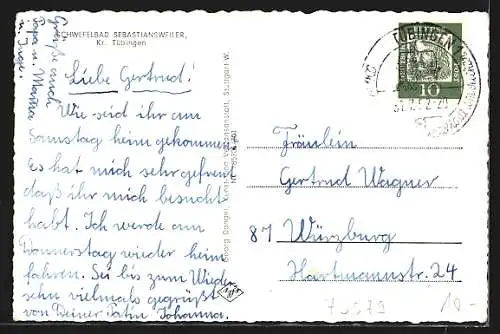 SCHWEFELBAD SEBASTIANSWEILER,
Kr. Tübingen
Grüße auch
Papa u. Mama
u. Inge.
Liebe Gertrud!
Wie seid ihr am
Samstag heim gekommen.
Es hat mich sehr gefreut
daß ihr mich besucht
habt. Ich werde am
Donnerstag wieder heim
fahren. Sei bis zum Wieder
sehn vielmals gegrüßt
von Deiner Patin Johanna.
Georg Dangel, Stuttgart-W.
TÜBINGEN
10
Fräulein
Gertrud Wagner
87 Würzburg
Hartmannstr. 24
10.-